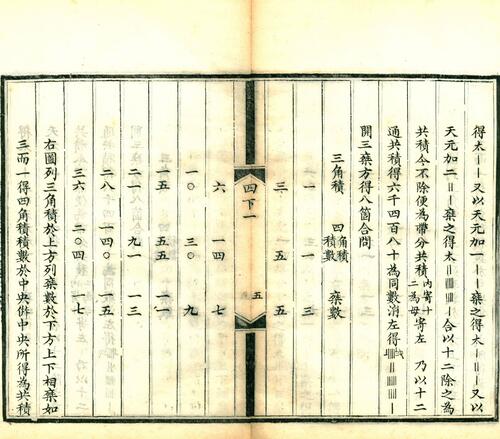 得太又以天元加一乘之得太又以
天元加二乘之得太合以十二除之為
共積今不除便為帶分共積內寄十二為母寄左 乃以十二
通共積得六千四百八十為同數消左得
開三乘方得八箇合問
三角積 四角積積數 乘數
一 一 三
三 五 五
四下一 五
六 一四 七
一〇 三〇 九
一五 五五 一一
二一 九一 一三
二八 一四〇 一五
三六 二〇四 一七
右圖列三角積於上方列乘數於下方上下相乘如
三而一得四角積積數於中央併中央所得為共積